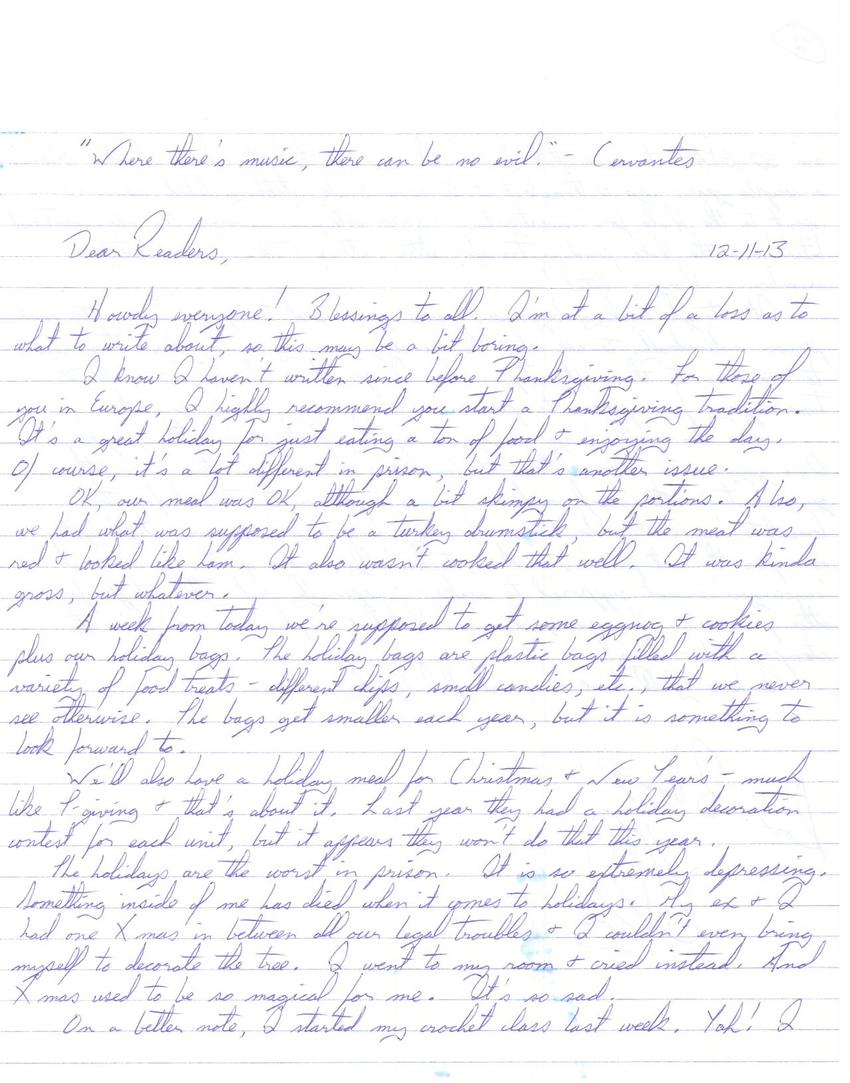 2
"Where there's music, there can be no evil." - Cervantes
Dear Readers, 12-11-13
Howdy everyone! Blessings to all. I'm at a bit of a loss as to
what to write about, so this may be a bit boring.
I know I haven't written since before Thanksgiving. For those of
you in Europe, I highly recommend you start a Thanksgiving tradition.
It's a great holiday for just eating a ton of food & enjoying the day.
Of course, it's a lot different in prison, but that's another issue.
OK, our meal was OK, although a bit skimpy on the portions. Also,
we had what was supposed to be a turkey drumstick, but the meat was
red & looked like ham. It also wasn't cooked that well. It was kinda
gross, but whatever.
A week from today we're supposed to get some eggnog & cookies
plus our holiday bags. The holiday bags are plastic bags filled with a
variety of food treats - different chips, small candies, etc., that we never
see otherwise. The bags get smaller each year, but it is something to
look forward to.
We'll also have a holiday meal for Christmas & New Year's - much
like T-giving & that's about it. Last year they had a holiday decoration
contest for each unit, but it appears they won't do that this year.
The holidays are the worst in prison. It is so extremely depressing.
Something inside of me has died when it comes to holidays. My ex & I
had one Xmas in between all our legal troubles & I couldn't even bring
myself to decorate the tree. I went to my room & cried instead. And
Xmas used to be so magical for me. It's so sad.
On a better note, I started my crochet class last week. Yah! I